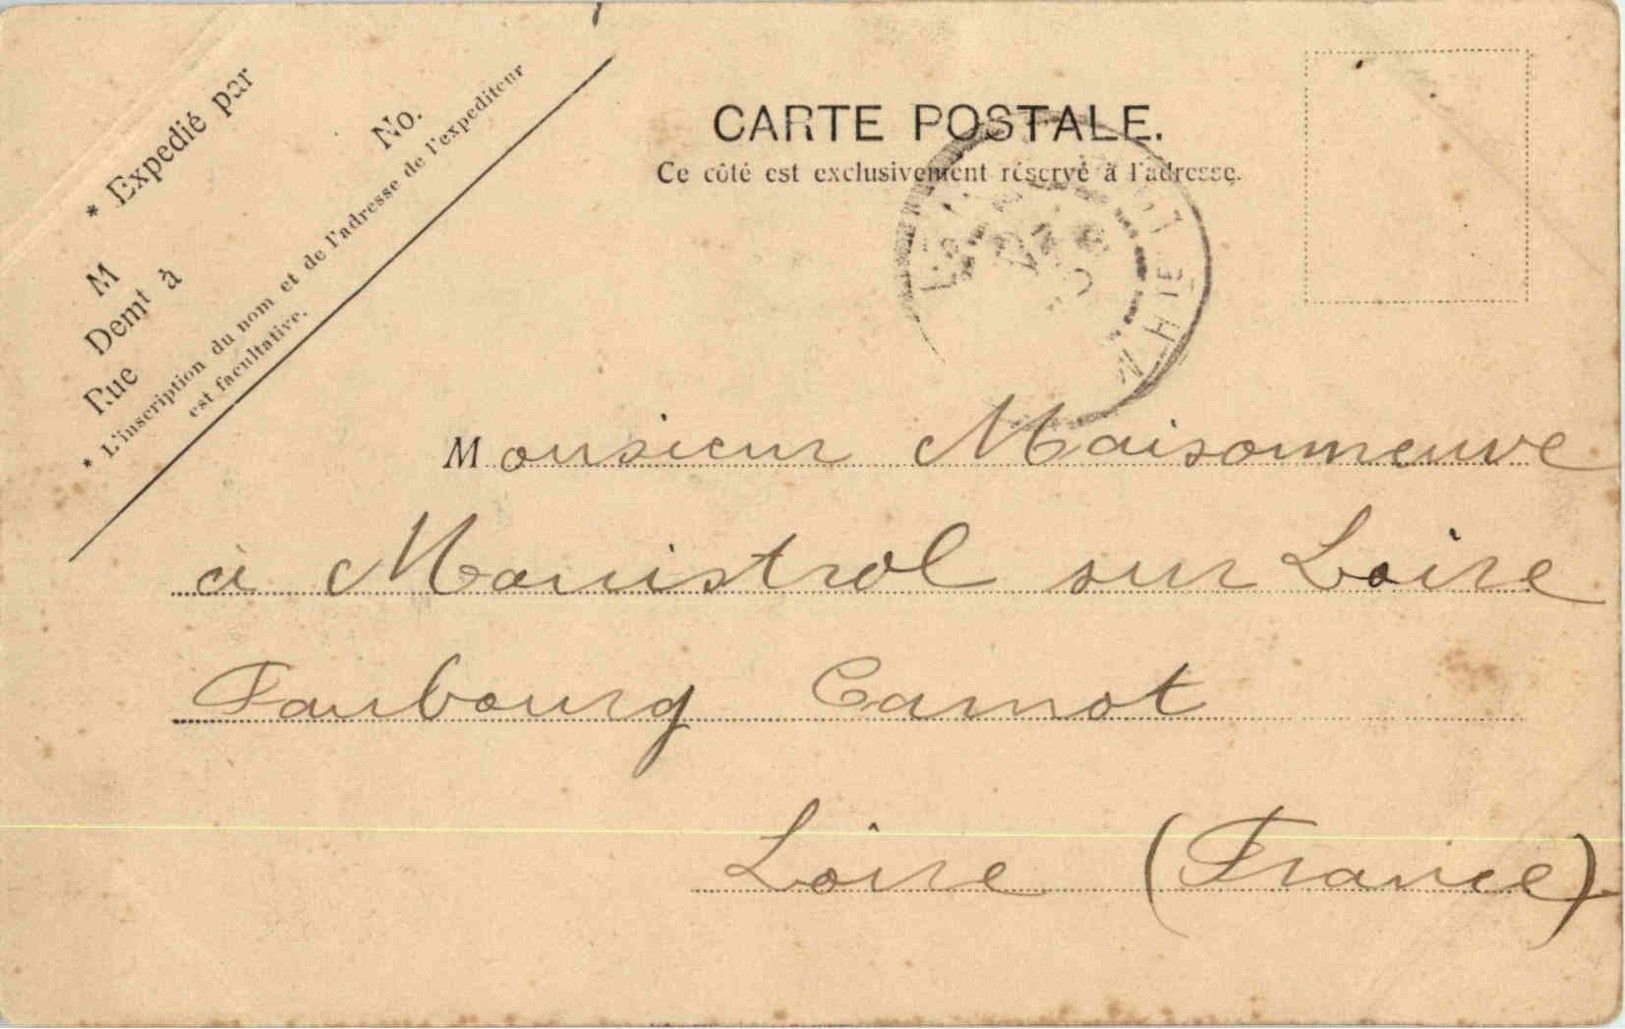 * Expedié par
M
Demt à
Rue
No.
* L'inscription du nom et de l'adresse de l'expediteur
est facultative.
CARTE POSTALE.
Ce côté est exclusivement réservé à l'adresse.
Monsieur Maisonneuve
à Monistrol sur Loire
Faubourg Carnot
Loire (France)